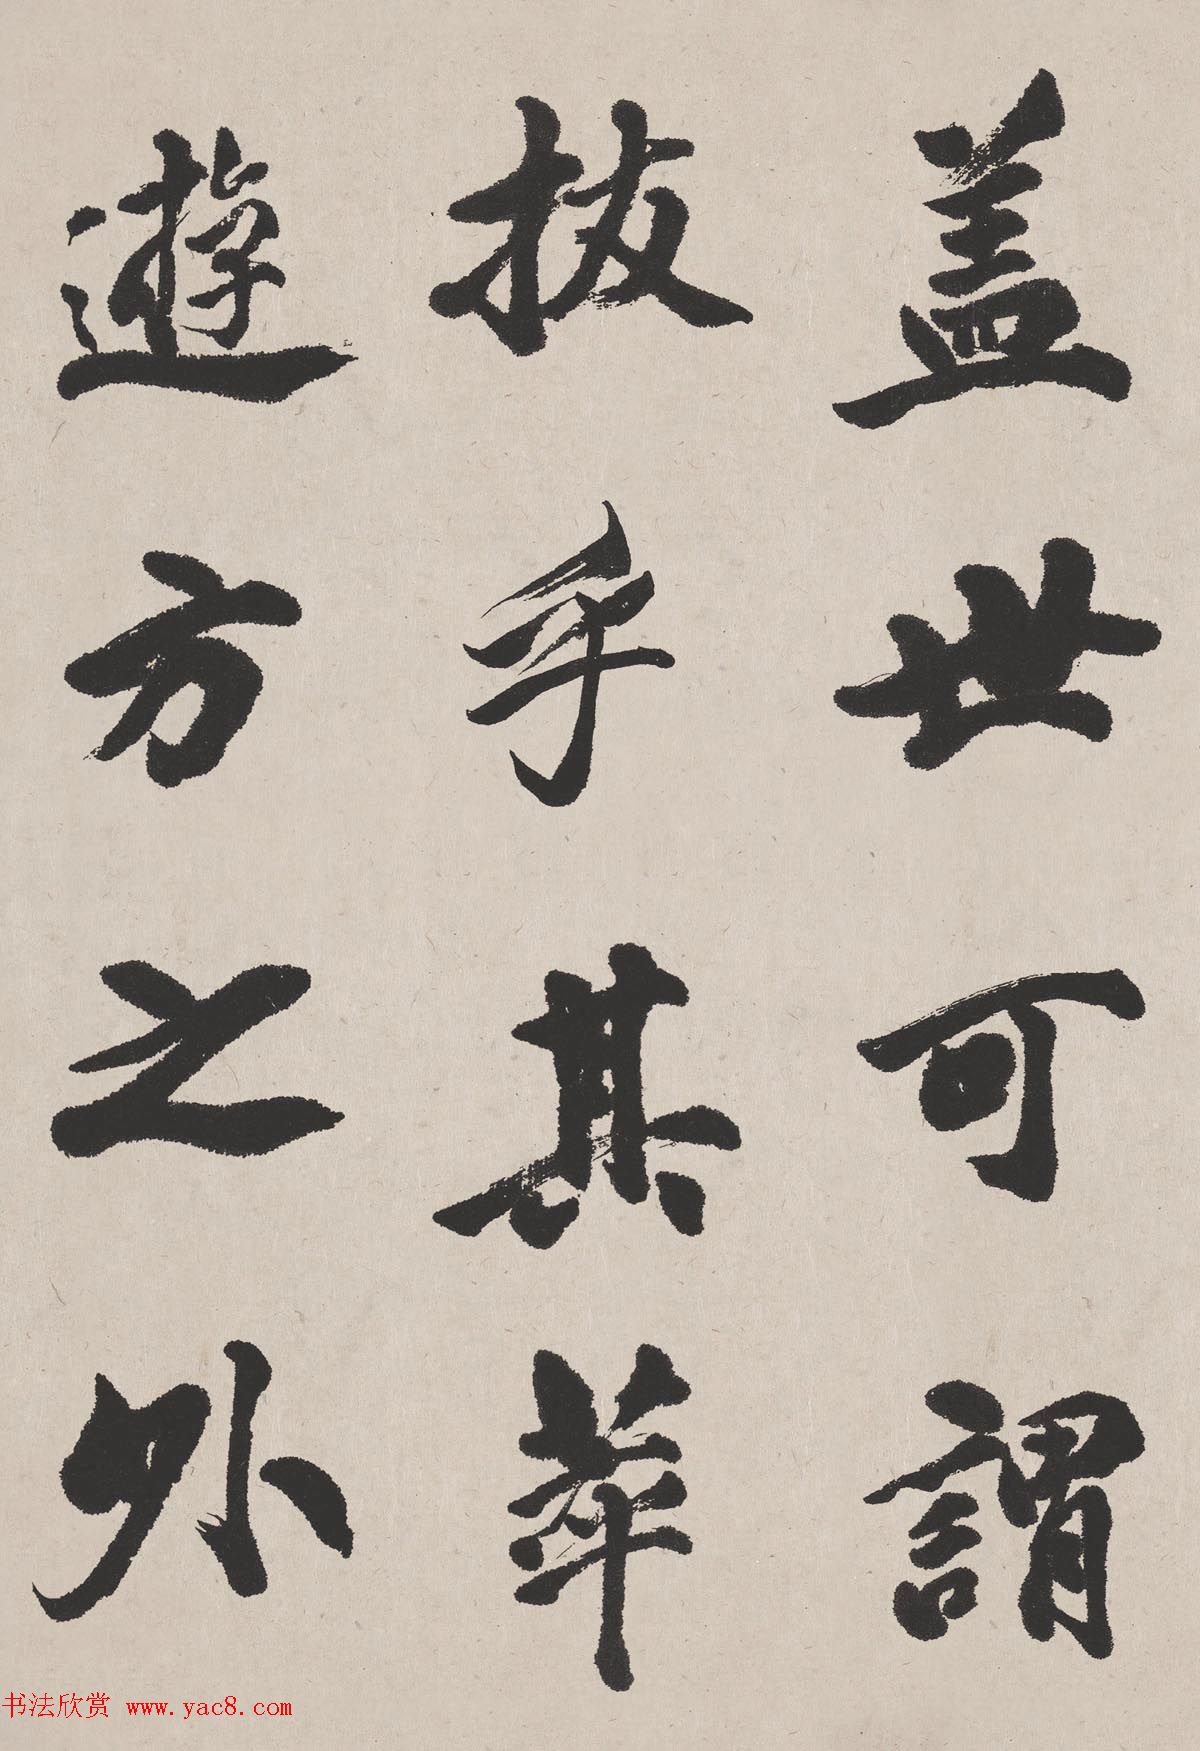 盖世可謂
拔乎其萃
遊方之外
书法欣赏 www.yac8.com